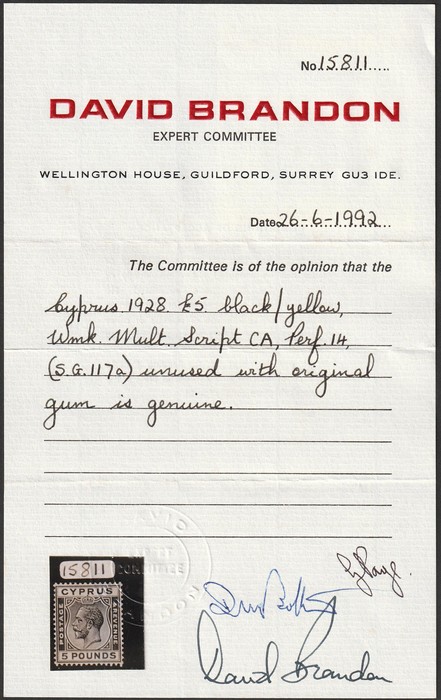 No. 15811
DAVID BRANDON
EXPERT COMMITTEE
WELLINGTON HOUSE, GUILDFORD, SURREY GU3 1DE.
Date 26-6-1992
The Committee is of the opinion that the
Cyprus 1928 £5 black/yellow,
Wmk. Mult. Script CA, Perf. 14,
(S.G.117a) unused with original
gum is genuine.
15811
CYPRUS
POSTAGE
REVENUE
5 POUNDS
David Brandon